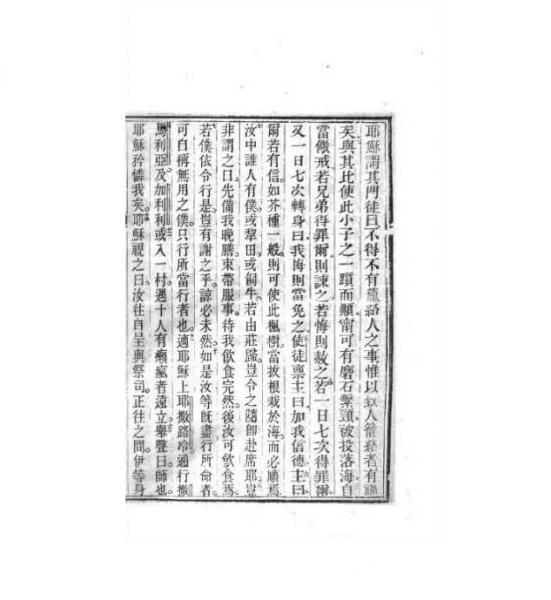 耶穌謂其門徒曰不得不有籠絡人之事惟以致人籠絡者有禍
矣與其比使此小子之一躓而顛甯可有磨石繫頭被投落海自
當儆戒若兄弟得罪爾則諫之若悔則赦之若一日七次得罪爾
又一日七次轉身曰我悔則當免之使徒稟主曰加我信德主曰
爾若有信如芥種一般則可使此楓樹當拔根栽於海而必順焉
汝中誰人有僕或犂田或飼牛若由莊歸豈令之隨即赴席耶豈
非謂之曰先備我晚膳束帶服事待我飲食完然後汝可飲食焉
若僕依令行是豈有謝之乎諒必未然如是汝等既盡行所命者
可自稱無用之僕只行所當行者也適耶穌上耶撒路冷通行撒
馬利亞及加利利或入一村遇十人有癩瘋者遠立舉聲曰師也
耶穌矜憐我矣耶穌視之曰汝往自呈與祭司正往之間伊等身